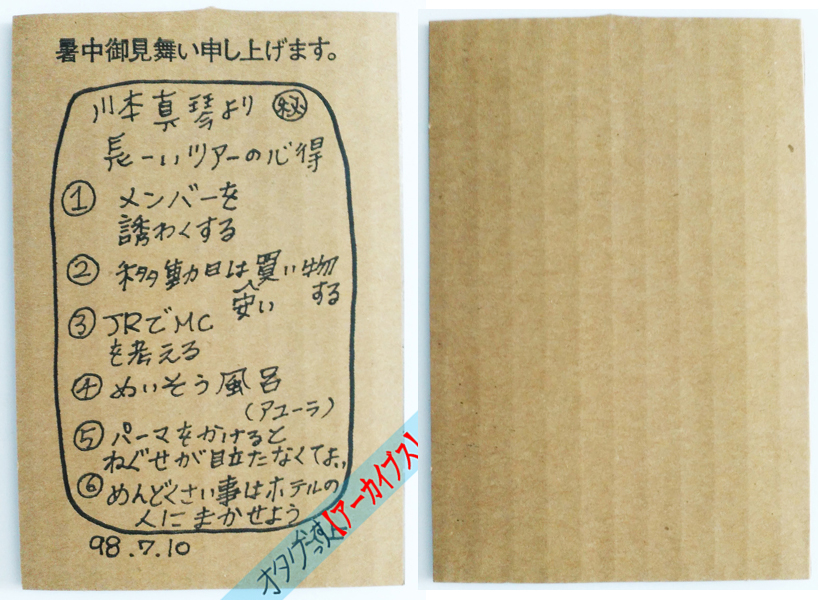 暑中御見舞い申し上げます。
川本真琴より ㊙
長ーいツアーの心得
① メンバーを
誘わくする
② 移動日は買い物
安い する
③ JRでMC
を考える
④ めいそう風呂
(アユーラ)
⑤ パーマをかけると
ねぐせが目立たなくてよい
⑥ めんどくさい事はホテルの
人にまかせよう
98.7.10
オタがーすっ
【アーカイブス】